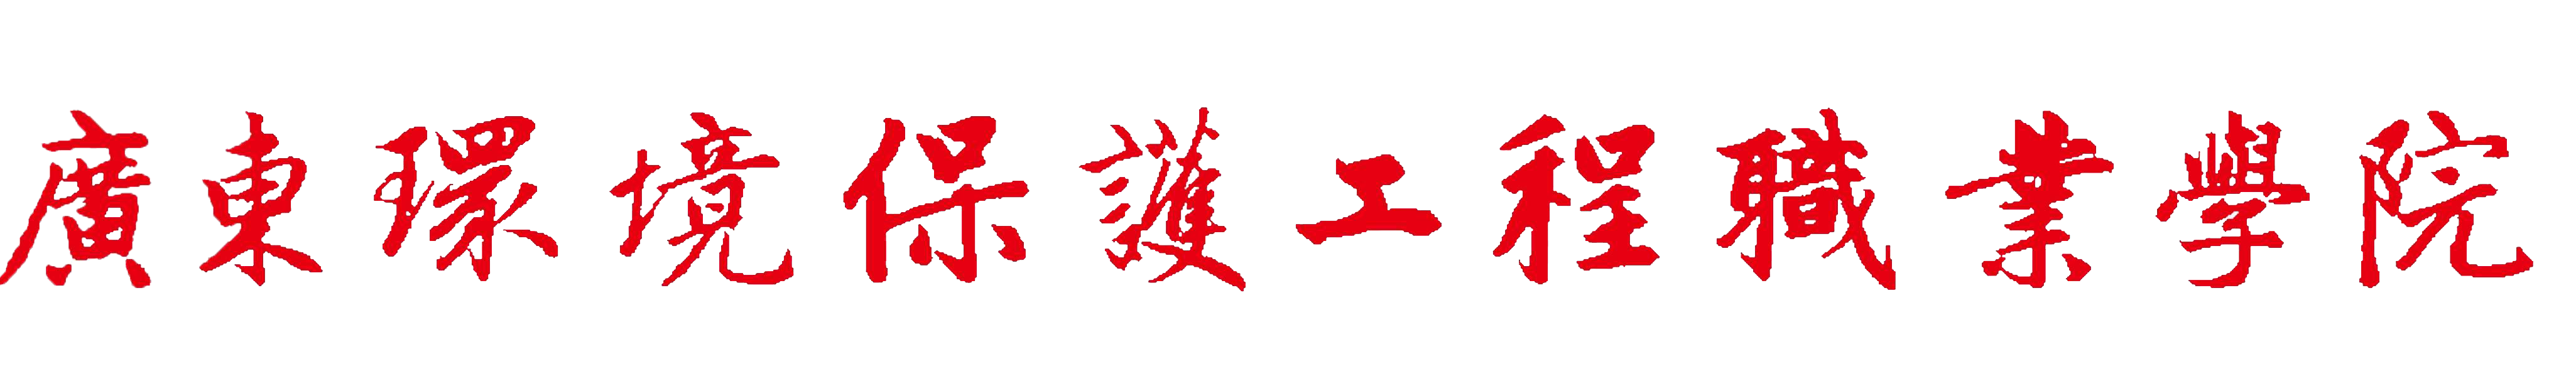 廣東環境保護工程職業學院